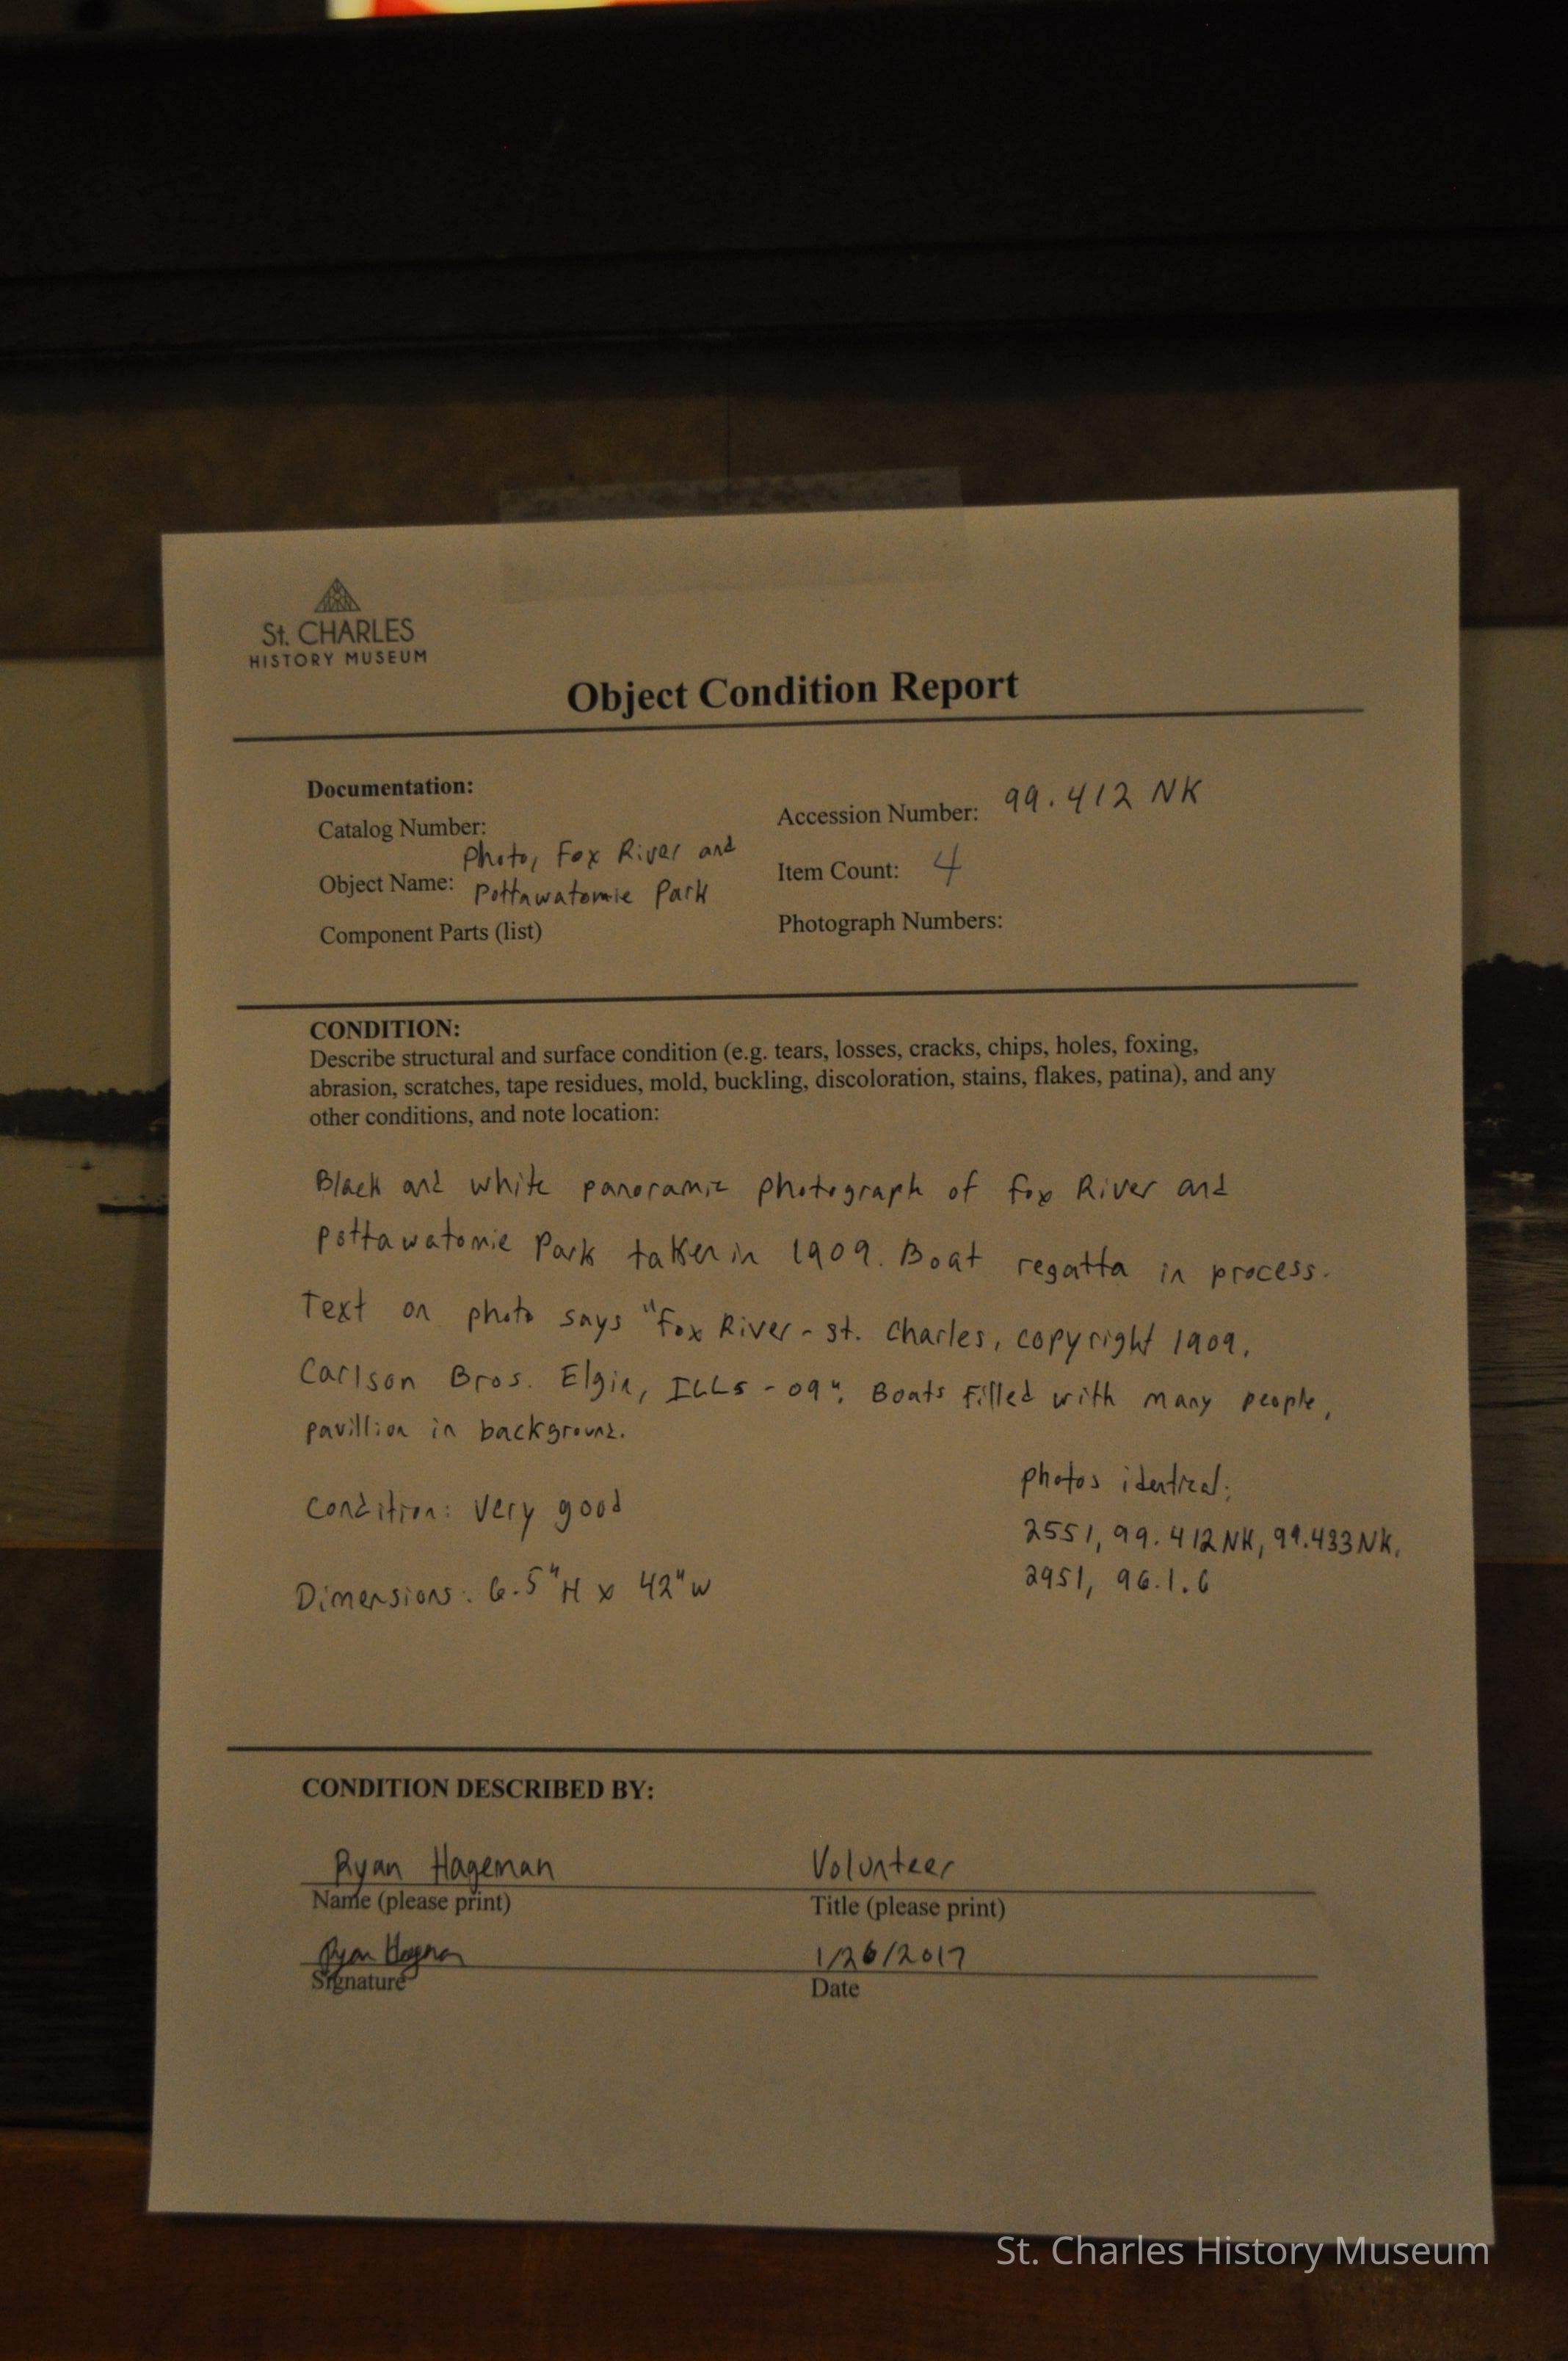 St. CHARLES
HISTORY MUSEUM
Object Condition Report
Documentation:
Catalog Number:
Accession Number: 99.412 NK
Object Name: Photo, Fox River and
Pottawatomie Park
Item Count: 4
Component Parts (list)
Photograph Numbers:
CONDITION:
Describe structural and surface condition (e.g. tears, losses, cracks, chips, holes, foxing,
abrasion, scratches, tape residues, mold, buckling, discoloration, stains, flakes, patina), and any
other conditions, and note location:
Black and white panoramic photograph of Fox River and
Pottawatomie Park taken in 1909. Boat regatta in process.
Text on photo says "Fox River - St. Charles, copyright 1909,
Carlson Bros. Elgin, ILLs - 09". Boats filled with many people,
pavillion in background.
Condition: Very good
Dimensions: 6.5"H x 42"W
photos identical:
2551, 99.412NK, 99.433NK,
2951, 96.1.6
CONDITION DESCRIBED BY:
Ryan Hageman
Volunteer
Name (please print)
Title (please print)
Ryan Hageman
1/26/2017
Signature
Date
St. Charles History Museum